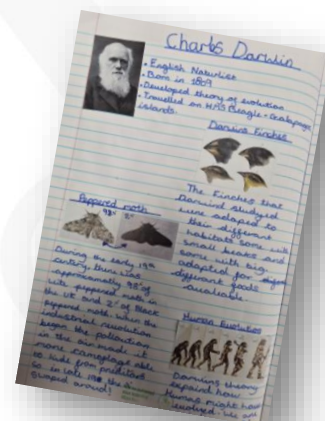 Charles Darwin
• English Naturlist
• Born in 1809
• Developed theory of evolution
• Travelled on HMS Beagle - Galapagos
islands.
Darwins Finches
The finches that
Darwin studyed
were adapted to
their different
habitats some with
small beaks and
some with big,
adapted for
different foods
available
Peppered moth
98% 2%
During the early 19th
century there was
approximatly 98% of
wite peppered moth in
the UK and 2% of black
pepperd moth when the
industrial revolution
began the polloution
in the air made it
more camoflage able
to hide from preditors
so in late 19th, the
swaped around!
Human Evolution
Darwins theory
explains how
Humans might have
evolved. We are